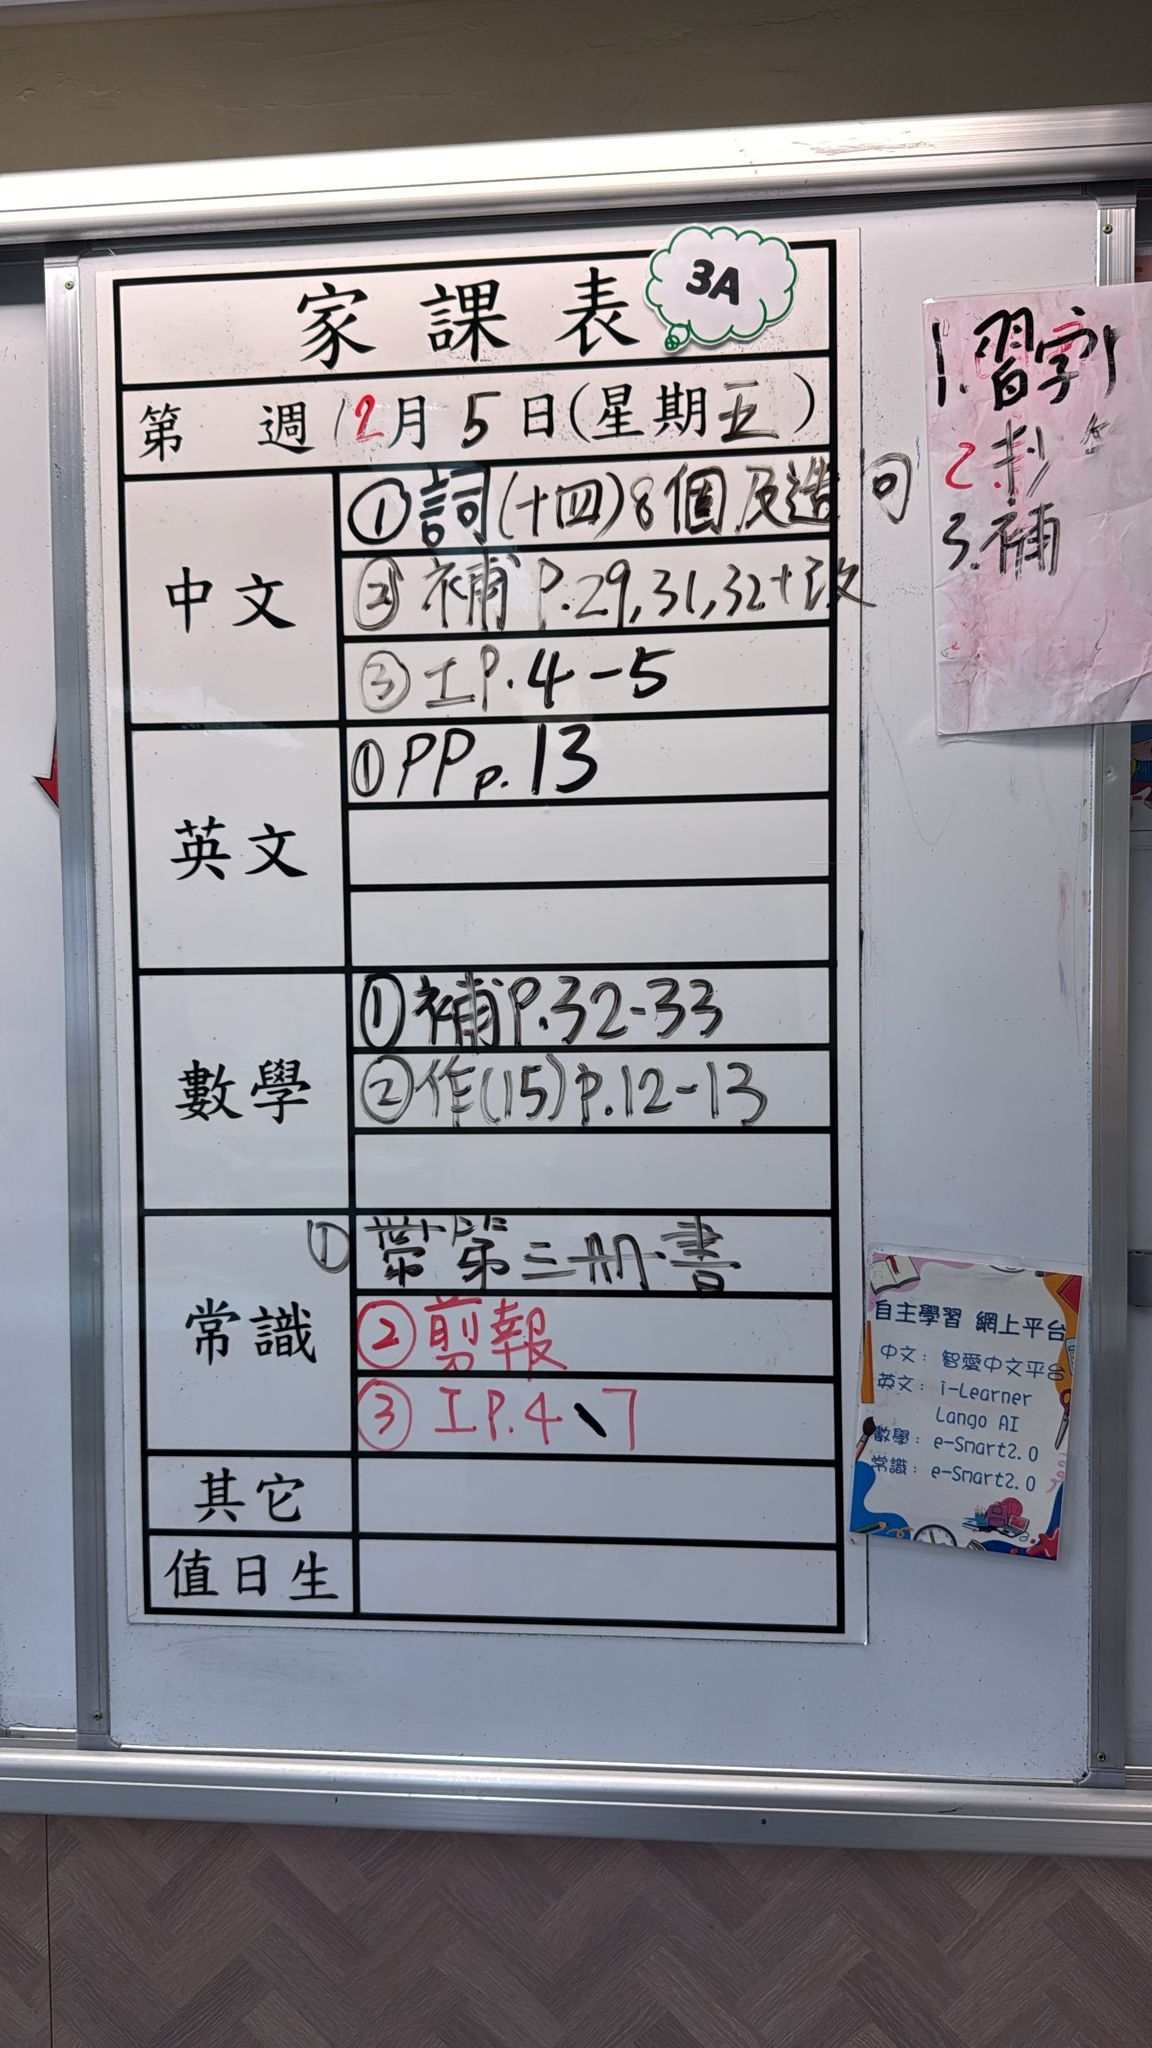 家課表
3A
第 週 12月5日(星期五)
中文
①詞(十四)8個及造句
②補P.29,31,32+改
③工P.4-5
英文
①PP p.13
數學
①補P.32-33
②作(15)P.12-13
常識
①帶第三冊書
②剪報
③工P.4、7
其它
值日生
1.習字
2.抄
3.補
自主學習 網上平台
中文：智愛中文平台
英文：i-Learner
Lango AI
數學：e-Smart2.0
常識：e-Smart2.0